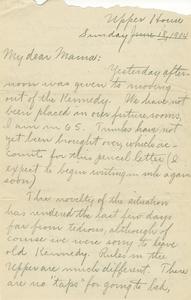 Upper House
Sunday June 18, 1904
My dear Mama:
Yesterday after-
noon was given to moving
out of the Kennedy. We have not
been placed in our future rooms,
I am in 65. Trunks have not
yet been brought over, which ac-
counts for this pencil letter (I
expect to begin writing in ink again
soon)
The novelty of the situation
has rendered the last few days
far from tedious, although of
course we were sorry to leave
old Kennedy. Rules in the
Upper are much different. There
are no "taps" for going to bed,